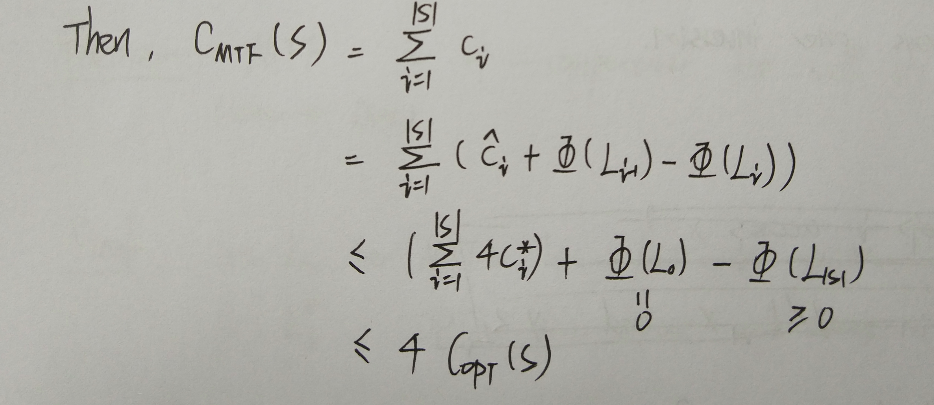 Then, C_MTF(S) = ∑_{i=1}^{|S|} c_i
= ∑_{i=1}^{|S|} (ĉ_i + Φ(L_{i-1}) - Φ(L_i))
≤ (∑_{i=1}^{|S|} 4c_i^*) + Φ(L_0) - Φ(L_{|S|})
|| 0 ≥ 0
≤ 4 C_OPT(S)